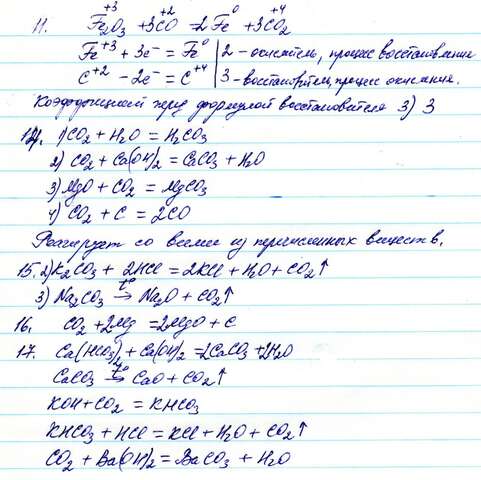 +3 +2 0 +4
11. Fe₂O₃ + 3CO = 2Fe + 3CO₂
Fe⁺³ + 3e⁻ = Fe⁰ | 2 - окислитель, процесс восстановления
C⁺² - 2e⁻ = C⁺⁴ | 3 - восстановитель, процесс окисления.
Коэффициент перед формулой восстановителя 3) 3
14. 1) CO₂ + H₂O = H₂CO₃
2) CO₂ + Ca(OH)₂ = CaCO₃ + H₂O
3) MgO + CO₂ = MgCO₃
4) CO₂ + C = 2CO
Реагирует со всеми из перечисленных веществ.
15. 2) K₂CO₃ + 2HCl = 2KCl + H₂O + CO₂↑
3) Na₂CO₃ t°→ Na₂O + CO₂↑
16. CO₂ + 2Mg = 2MgO + C
17. Ca(HCO₃)₂ + Ca(OH)₂ = 2CaCO₃ + 2H₂O
CaCO₃ t°→ CaO + CO₂↑
KOH + CO₂ = KHCO₃
KHCO₃ + HCl = KCl + H₂O + CO₂↑
CO₂ + Ba(OH)₂ = BaCO₃ + H₂O